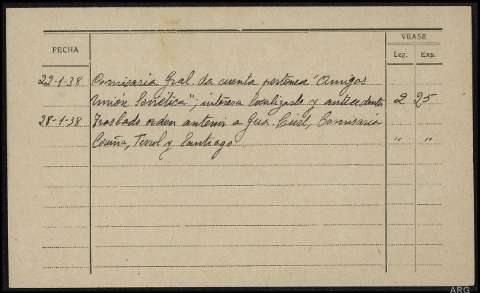 VEASE
FECHA
Leg. Exp.
22-1-38 Comisaria Gral. da cuenta pertenece "Amigos
Unión Soviética"; interesa localizarlo y antecedentes 2 25
28-1-38 Traslado orden anterior a Gua. Civil, Comisaria
Coruña, Ferrol y Santiago " "
ARG